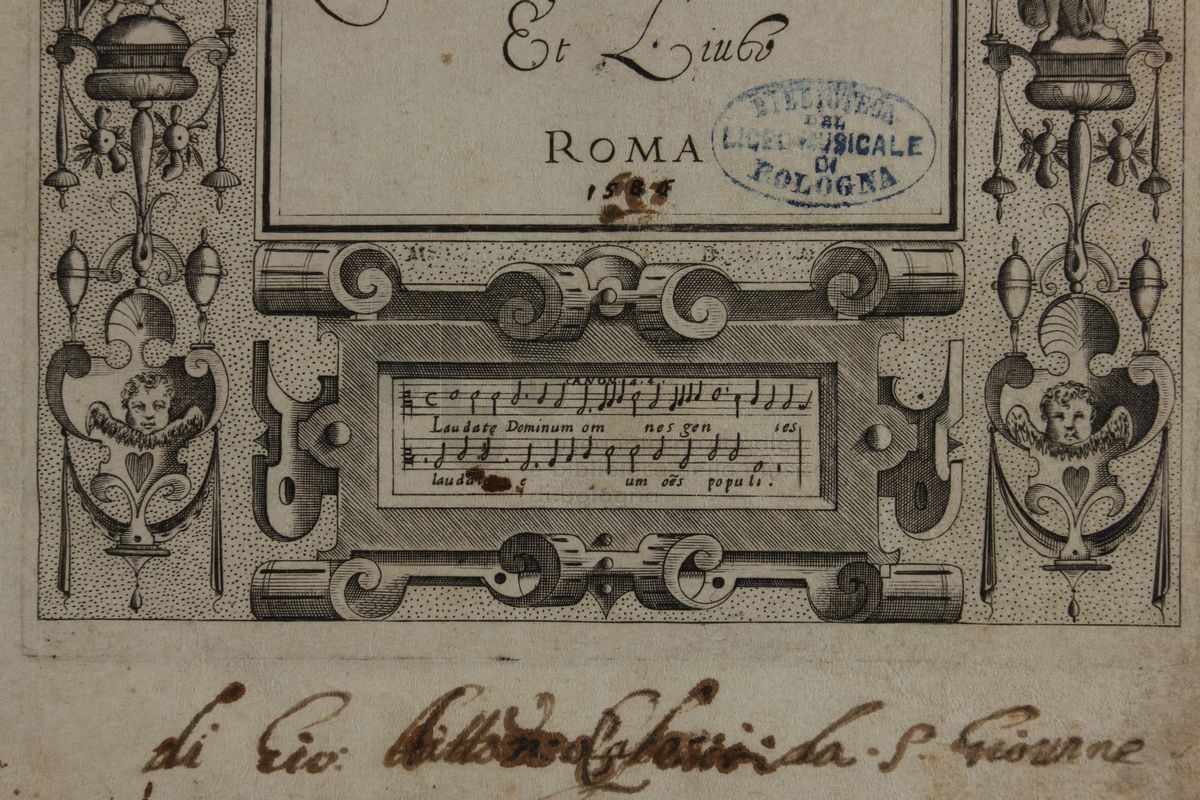 Et Liuto
ROMA
BIBLIOTECA
DEL
LICEO MUSICALE
DI
BOLOGNA
CANON. 4. 4.
Laudate Dominum om nes gen tes
laudate e um oēs populi.
di Gio: da S. Giouanne